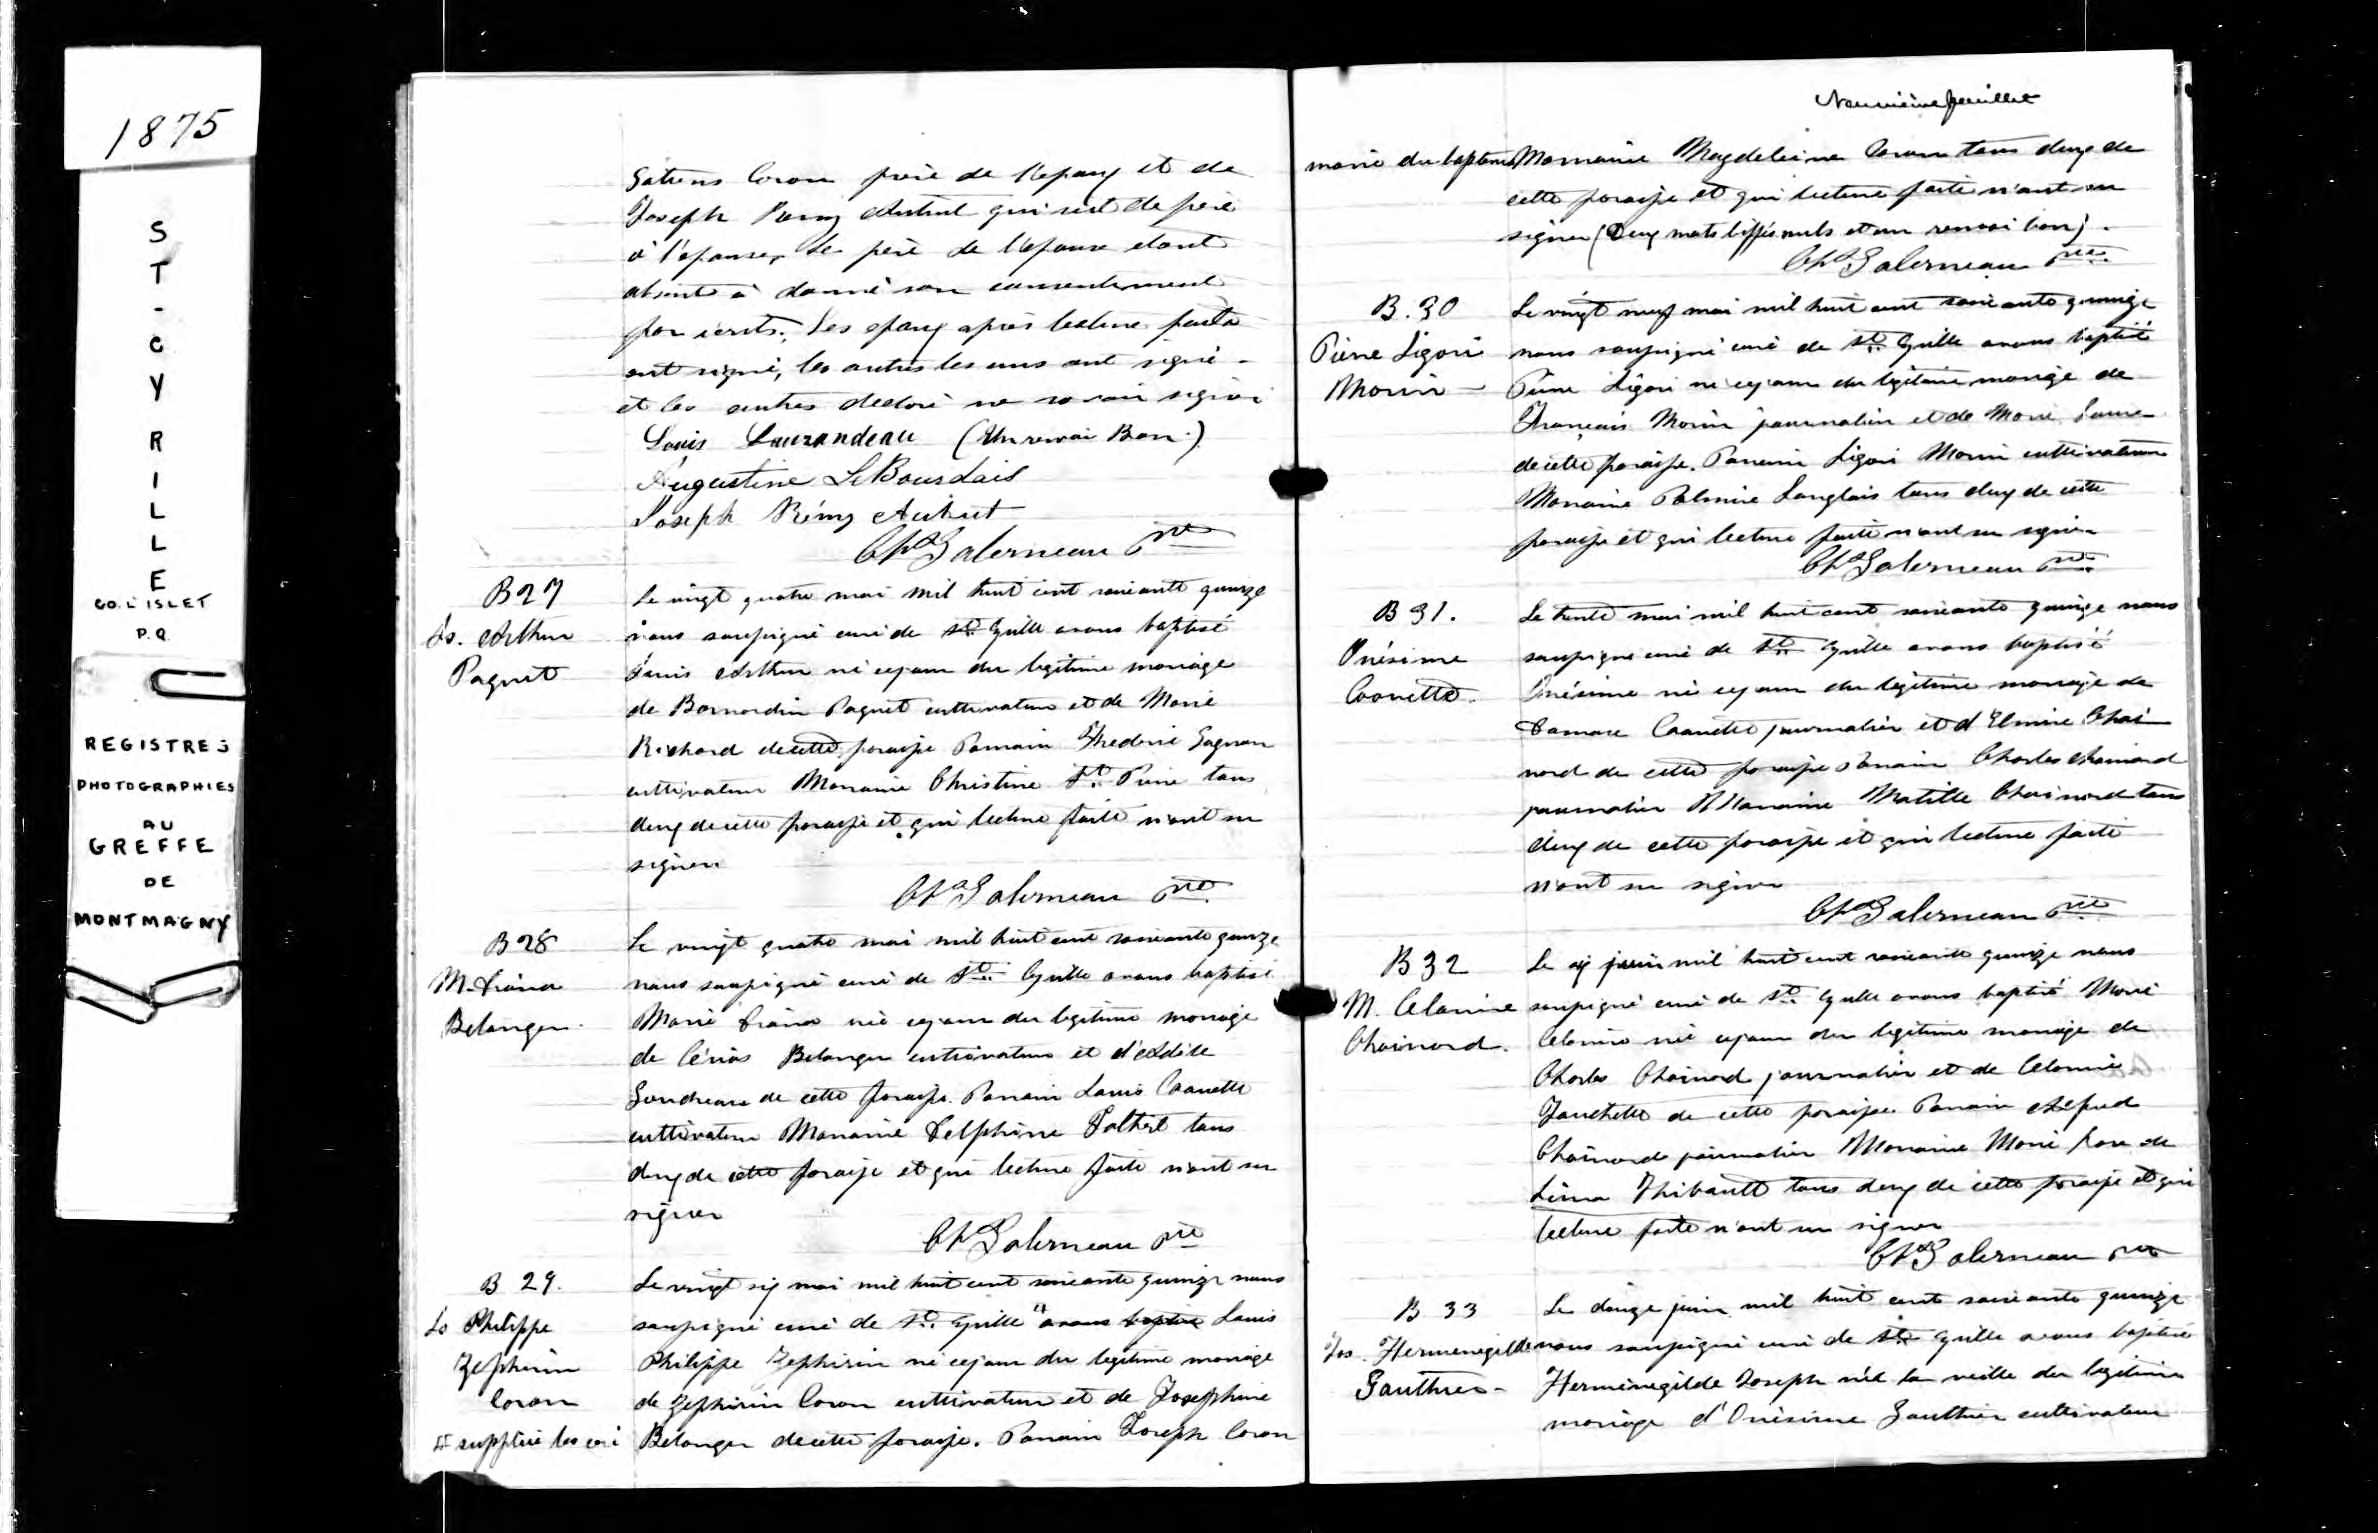 1875
ST-CYRILLE
CO. L'ISLET
P.Q.
REGISTRES
PHOTOGRAPHIES
AU
GREFFE
DE
MONTMAGNY
Gatiens Caron père de l'epoux et de
Joseph Remy Aubut qui sert de père
à l'epouse, le père de l'epouse etant
absent à donné son consentement
par ecrits. Les epoux après lecture faite
ont signé, les autres les uns ont signé
et les autres declaré ne savoir signer
Louis Lauzandeau (Un renvoi Bon.)
Augustine LeBourdais
Joseph Rémy Aubut
Chs Galerneau Ptre
B27
Ls. Arthur
Paquet
Le vingt quatre mai mil huit cent soixante quinze
nous soussigné curé de St. Cyrille avons baptisé
Louis Arthur né ce jour du legitime mariage
de Bernardin Paquet cultivateur et de Marie
Richard de cette paroisse Parrain Frederic Gagnon
cultivateur Marraine Christine St. Pierre tous
deux de cette paroisse et qui lecture faite n'ont su
signer
Chs Galerneau Ptre
B28
M.
Belanger
Le vingt quatre mai mil huit cent soixante quinze
nous soussigné curé de St. Cyrille avons baptisé
Marie née ce jour du legitime mariage
de Belanger cultivateur et d'Adèle
Gaudreau de cette paroisse. Parrain Louis Caouette
cultivateur Marraine Delphine Talbot tous
deux de cette paroisse et qui lecture faite n'ont su
signer
Chs Galerneau Ptre
B 29.
Ls Philippe
Zephirin
Caron
# supplée les céré
Le vingt six mai mil huit cent soixante quinze nous
soussigné curé de St. Cyrille # avons baptisé Louis
Philippe Zephirin né ce jour du legitime mariage
de Zephirin Caron cultivateur et de Josephine
Bélanger de cette paroisse. Parrain Joseph Caron
Neuvième feuillet
monie du baptême Marraine Magdeleine Caron tous deux de
cette paroisse et qui lecture faite n'ont su
signer (Deux mots biffés nuls et un renvoi bon).
Chs Galerneau Ptre.
B.30
Pierre Ligori
Morin
Le vingt neuf mai mil huit cent soixante quinze
nous soussigné curé de St. Cyrille avons baptisé
Pierre Ligori né ce jour du legitime mariage de
François Morin journalier et de Marie
de cette paroisse. Parrain Ligori Morin cultivateur
Marraine Palmire Langlais tous deux de cette
paroisse et qui lecture faite n'ont su signer
Chs Galerneau Ptre.
B 31.
Onésime
Caouette.
Le trente mai mil huit cent soixante quinze nous
soussigné curé de St. Cyrille avons baptisé
Onésime né ce jour du legitime mariage de
Damase Caouette journalier et d'Elmire Choi
nard de cette paroisse Parrain Charles Choinard
journalier Marraine Matilde Choinard tous
deux de cette paroisse et qui lecture faite
n'ont su signer
Chs Galerneau Ptre
B 32
M. Celanire
Choinard.
Le six juin mil huit cent soixante quinze nous
soussigné curé de St. Cyrille avons baptisé Marie
Celanire née ce jour du legitime mariage de
Charles Choinard journalier et de Celanire
Fanchette de cette paroisse Parrain Alfred
Choinard journalier Marraine Marie Rose de
Lima Thibault tous deux de cette paroisse et qui
lecture faite n'ont su signer
Chs Galerneau Ptre
B 33
Jos. Hermenegilde
Gauthier
Le douze juin mil huit cent soixante quinze
nous soussigné curé de St. Cyrille avons baptisé
Herménégilde Joseph né la veille du legitime
mariage d'Onésime Gauthier cultivateur